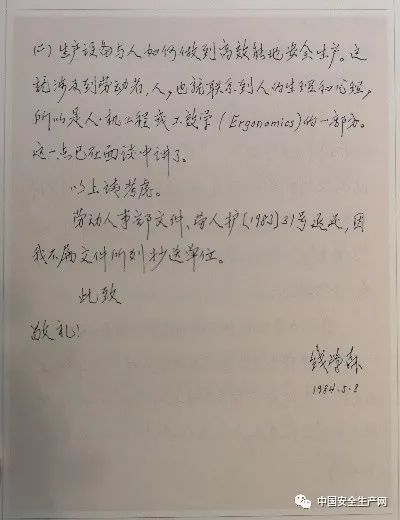 (二)生产设备与人如何做到高效能地安全生产。这
就涉及到劳动者,人,也就联系到人的生理和心理,
所以是人-机工程或工效学(Ergonomics)的一部分。
这一点已在面谈中讲了。
以上请考虑。
劳动人事部文件、劳人护〔1983〕31号退还,因
我不属文件所列抄送单位。
此致
敬礼!
钱学森
1984.5.8
中国安全生产网